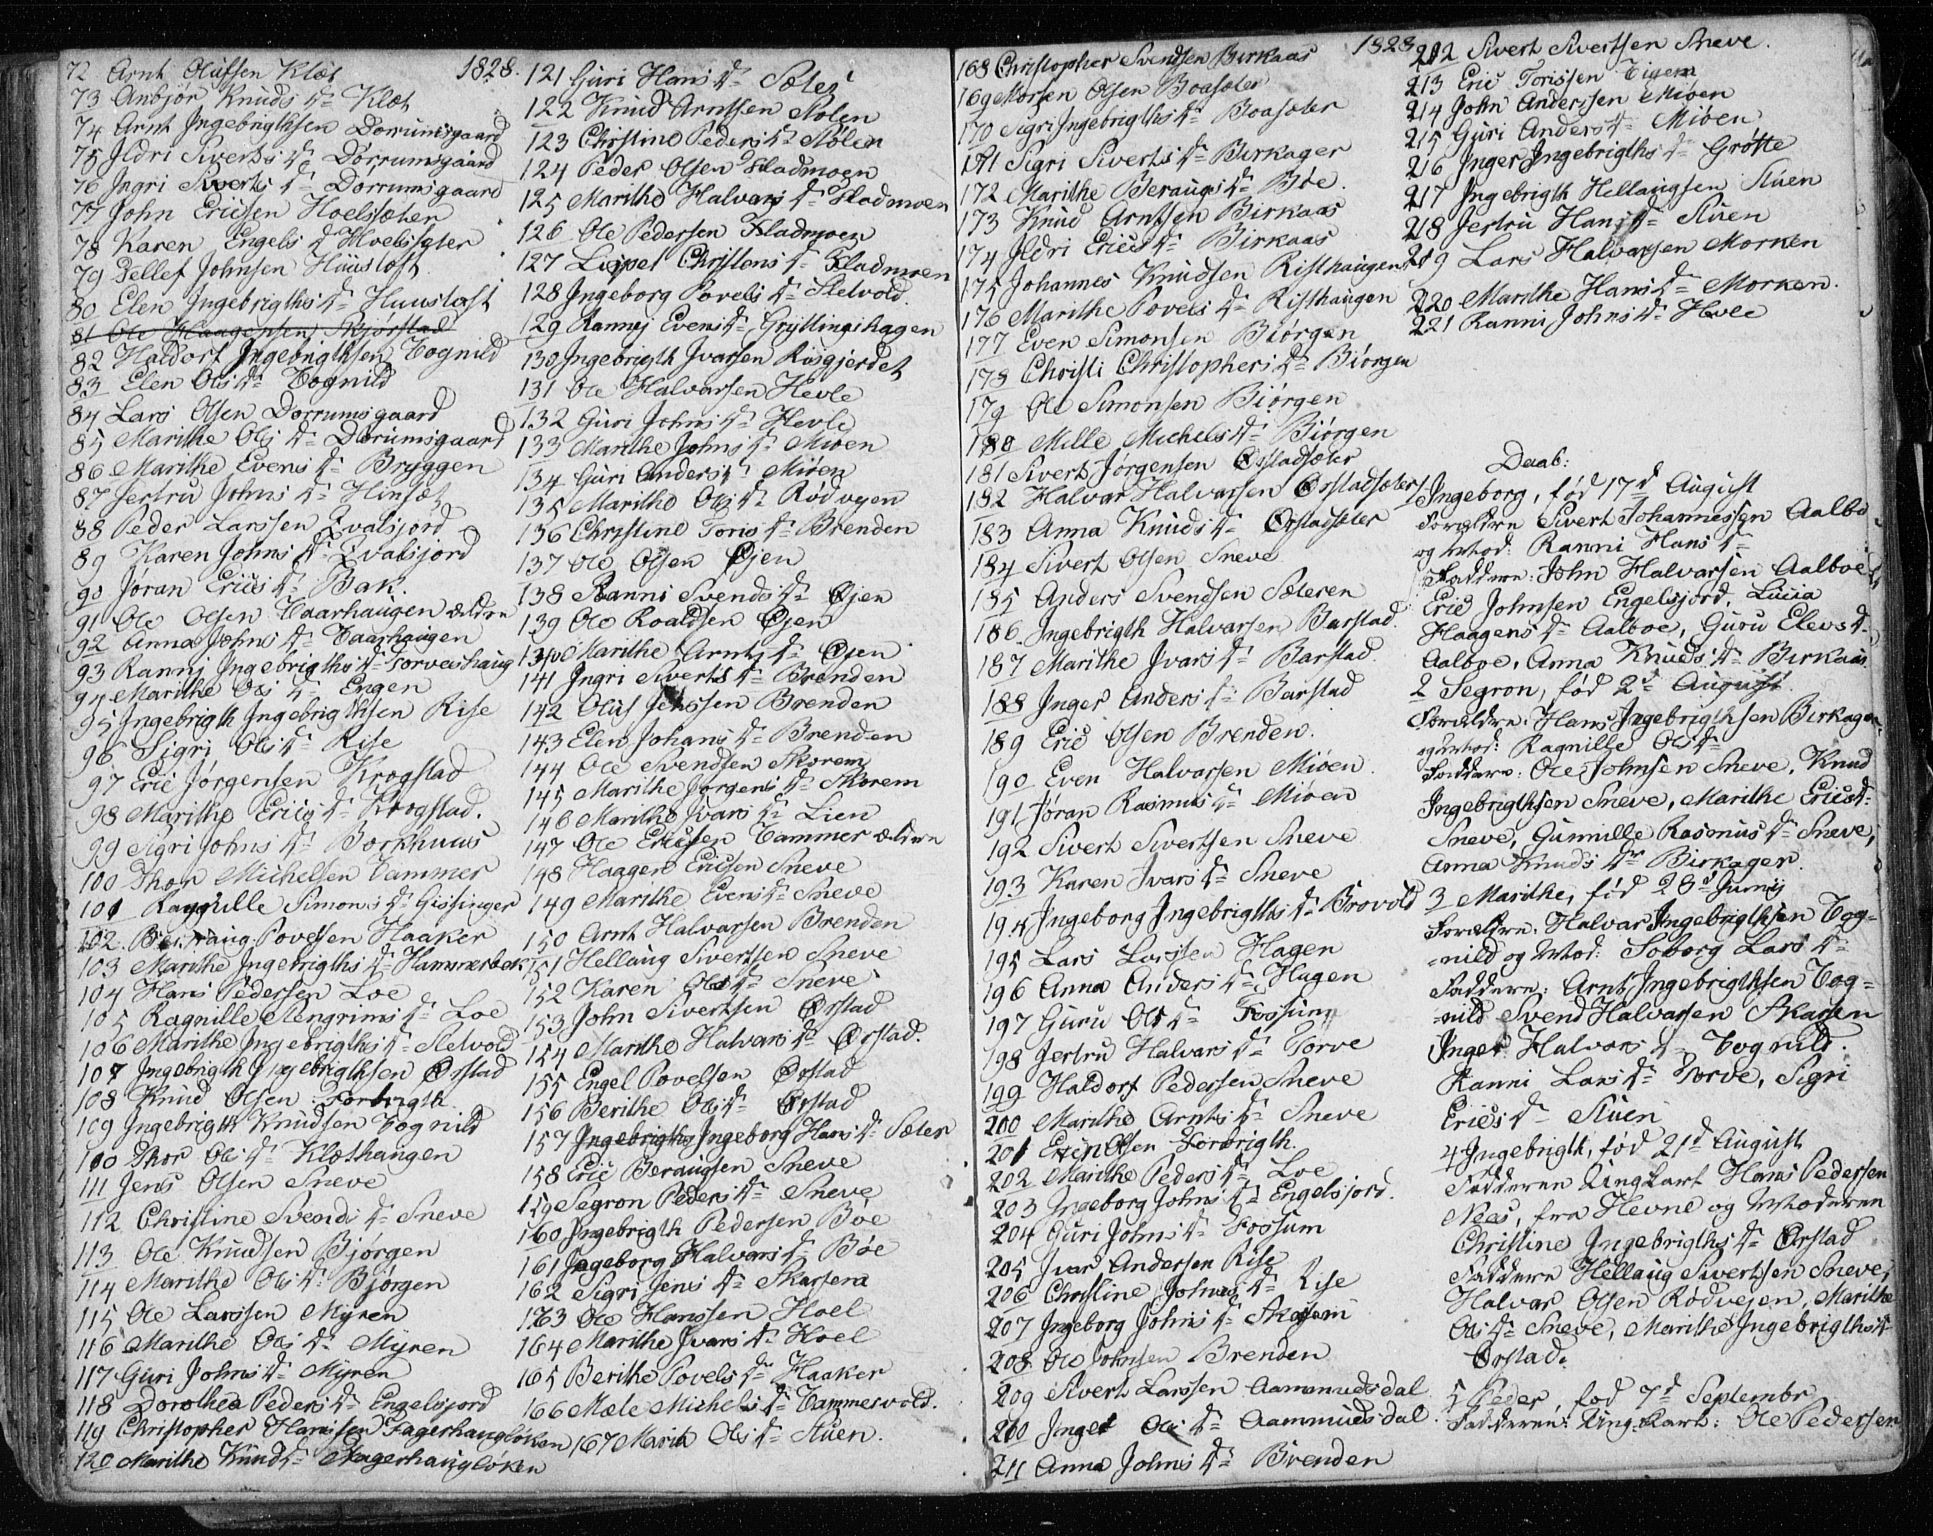 1828.
72 Arnt Olufsen Klæt
73 Anbjør Knuds Dr Klæt
74 Arnt Ingebrigthsen Dørrumsgaard
75 Ildri Siverts Dr Dørrumsgaard
76 Ingri Siverts Dr Dørrumsgaard
77 John Ericsen Hoelsæter
78 Karen Engels Dr Hoelsæter
79 Dellef Johnsen Huusloft
80 Elen Ingebrigths Dr Huusloft
81 Ole Haagensen Skjørstad
82 Haldorf Ingebrigthsen Tognild
83 Elen Ols Dr Tognild
84 Lars Olsen Dørrumsgaard
85 Marithe Ols Dr Dørrumsgaard
86 Marithe Evens Dr Bryggen
87 Jertru Johns Dr Hinsæt
88 Peder Larssen Evalsjord
89 Karen Johns Dr Evalsjord
90 Jøran Erics Dr Bak
91 Ole Olsen Taarhaugen ældre
92 Anna Johns Dr Taarhaugen
93 Ranni Ingebrigths Dr Torveshaug
94 Marithe Ols Dr Engen
95 Ingebrigth Ingebrigthsen Rise
96 Sigri Ols Dr Rise
97 Eric Jørgensen Krogstad
98 Marithe Erics Dr Krogstad.
99 Sigri Johns Dr Borkhuus
100 Thor Michelsen Tammer
101 Ragnille Simons Dr Gissinger
102 Beraug Povelsen Haaker
103 Marithe Ingebrigths Dr Hammerbak
104 Hans Pedersen Loe
105 Ragnille Elengrims Dr Loe
106 Marithe Ingebrigths Dr Sletvold
107 Ingebrigth Ingebrigthsen Ørstad
108 Knud Olsen Forbrigth
109 Ingebrigth Knudsen Tognild
110 Thor Ols Dr Klæthaugen
111 Jens Olsen Sneve
112 Christine Svends Dr Sneve
113 Ole Knudsen Bjørgen
114 Marithe Ols Dr Bjørgen
115 Ole Larssen Myren
116 Marithe Ols Dr Myren
117 Guri Johns Dr Myren
118 Dorothea Peders Dr Engelsjord
119 Christopher Hanssen Fagerhaugløken
120 Marithe Knuds Dr Fagerhaugløken
121 Guri Hans Dr Sæter
122 Knud Arntsen Stølen
123 Christine Peders Dr Stølen
124 Peder Olsen Fladmoen
125 Marithe Halvars Dr Fladmoen
126 Ole Pedersen Fladmoen
127 Lispet Christens Dr Fladmoen
128 Ingeborg Povels Dr Sletvold.
129 Ranni Evens Dr Gryttingshagen
130 Ingebrigth Ivarsen Riisgjerdet
131 Ole Halvarsen Hevle
132 Guri Johns Dr Hevle
133 Marithe Johns Dr Miøen
134 Guri Anders Dr Miøen
135 Marithe Ols Dr Rødvejen
136 Christine Toris Dr Brenden
137 Ole Olsen Øjen
138 Ranni Svends Dr Øjen
139 Ole Roaldsen Øjen
140 Marithe Arnts Dr Øjen
141 Ingri Siverts Dr Brenden
142 Oluf Jenssen Brenden
143 Elen Johans Dr Brenden
144 Ole Svendsen Skorem
145 Marithe Jørgens Dr Skorem
146 Marithe Ivars Dr Lien
147 Ole Ericsen Tammer ældre
148 Haagen Ericsen Sneve
149 Marithe Evens Dr Sneve
150 Arnt Halvarsen Brenden
151 Hellaug Sivertsen Sneve
152 Karen Ols Dr Sneve
153 John Sivertsen Ørstad
154 Marithe Halvars Dr Ørstad.
155 Engel Povelsen Ørstad
156 Berithe Ols Dr Ørstad
157 Ingebrigths Ingeborg Hans Dr Sæter
158 Eric Beraugsen Sneve
159 Segron Peders Dr Sneve
160 Ingebrigth Pedersen Bøe
161 Ingeborg Halvars Dr Bøe
162 Sigri Jens Dr Skarsem
163 Ole Hanssen Hoel
164 Marithe Ivars Dr Hoel
165 Berithe Povels Dr Haaker
166 Mæle Michels Dr Tammesvold.
167 Marit Ols Dr Stuen.
1828
168 Christopher Svendsen Birkaas
169 Morten Olsen Boasæter
170 Sigri Ingebrigths Dr Boasæter
171 Sigri Siverts Dr Birkager
172 Marithe Beraugs Dr Bøe.
173 Knud Arntsen Birkaas
174 Ildri Erics Dr Birkaas
175 Johannes Knudsen Risthaugen
176 Marithe Povels Dr Risthaugen
177 Even Simonsen Biørgen
178 Christi Christophers Dr Biørgen
179 Ole Simonsen Biørgen
180 Mille Michels Dr Biørgen
181 Sivert Jørgensen Ørstadsæter
182 Halvar Halvarsen Ørstadsæter
183 Anna Knuds Dr Ørstadsæter
184 Sivert Olsen Sneve
185 Anders Svendsen Sæteren
186 Ingebrigth Halvarsen Barstad.
187 Marithe Ivars Dr Barstad.
188 Inger Anders Dr Barstad
189 Eric Olsen Brenden.
190 Even Halvarsen Miøen.
191 Jøran Rasmus Dr Miøen
192 Sivert Sivertsen Sneve
193 Karen Ivars Dr Sneve
194 Ingeborg Ingebrigths Dr Brovold
195 Lars Larssen Hagen
196 Anna Anders Dr Hagen
197 Guru Ols Dr Fossum
198 Jertru Halvars Dr Torve
199 Haldorf Pedersen Sneve
200 Marithe Arnts Dr Sneve
201 Even Olsen Forbrigth.
202 Marithe Peders Dr Loe
203 Ingeborg Johns Dr Engelsjord.
204 Guri Johns Dr Fossum
205 Ivar Andersen Rise
206 Christine Johns Dr Rise
207 Ingeborg Johns Dr Skorem
208 Ole Johnsen Brenden
209 Sivert Larssen Aamundsdal
210 Inger Ols Dr Aammundsdal
211 Anna Johns Dr Brenden
212 Sivert Sivertsen Sneve.
213 Eric Torissen Vigem
214 John Anderssen Miøen
215 Guri Anders Dr Miøen
216 Inger Ingebrigths Dr Grøtte
217 Ingebrigth Hellaugsen Stuen
218 Jertru Hans Dr Stuen
219 Lars Halvarsen Morken
220 Marithe Hans Dr Morken.
221 Ranni Johns Dr Hvle
Daab:
1 Ingeborg, fød 17d August
Forældre Sivert Johannessen Aalbo
og Mod: Ranni Hans Dr
Faddere: John Halvarsen Aalboe
Eric Johnsen Engelsjord, Lucia
Haagens Dr Aalboe, Guru Elevs Dr
Aalboe, Anna Knuds Dr Birkaas
2 Segron, fød 2d August
Forældre: Hans Ingebrigthsen Birkager
og Mod: Ragnille Ols Dr
Faddere: Ole Johnsen Sneve, Knud
Ingebrigthsen Sneve, Marithe Erics Dr
Sneve, Gunnille Rasmus Dr Sneve,
Anna Knuds Dr Birkager.
3 Marithe, fød 28d Junij
Forældre: Halvar Ingebrigthsen Tog=
=nild og Mod: Soborg Lars Dr
Faddere: Arnt Ingebrigthsen Tog=
=nild Svend Halvarsen Skarsen
Inger Halvars Dr Tognild.
Ranni Lars Dr Torve, Sigri
Erics Dr Stuen
4 Ingebrigth, fød 21d August
Fadderen Ungkarl Hans Pedersen
Nees, fra Hevne og Moderen
Christine Ingebrigths Dr Ørstad
Faddere Hellaug Sivertsen Sneve,
Halvar Olsen Rødvejen, Marithe
Ols Dr Sneve, Marithe Ingebrigths Dr
Ørstad.
5 Peder, fød 7d Septembr
Fadderen: Ung.karl: Ole Pedersen